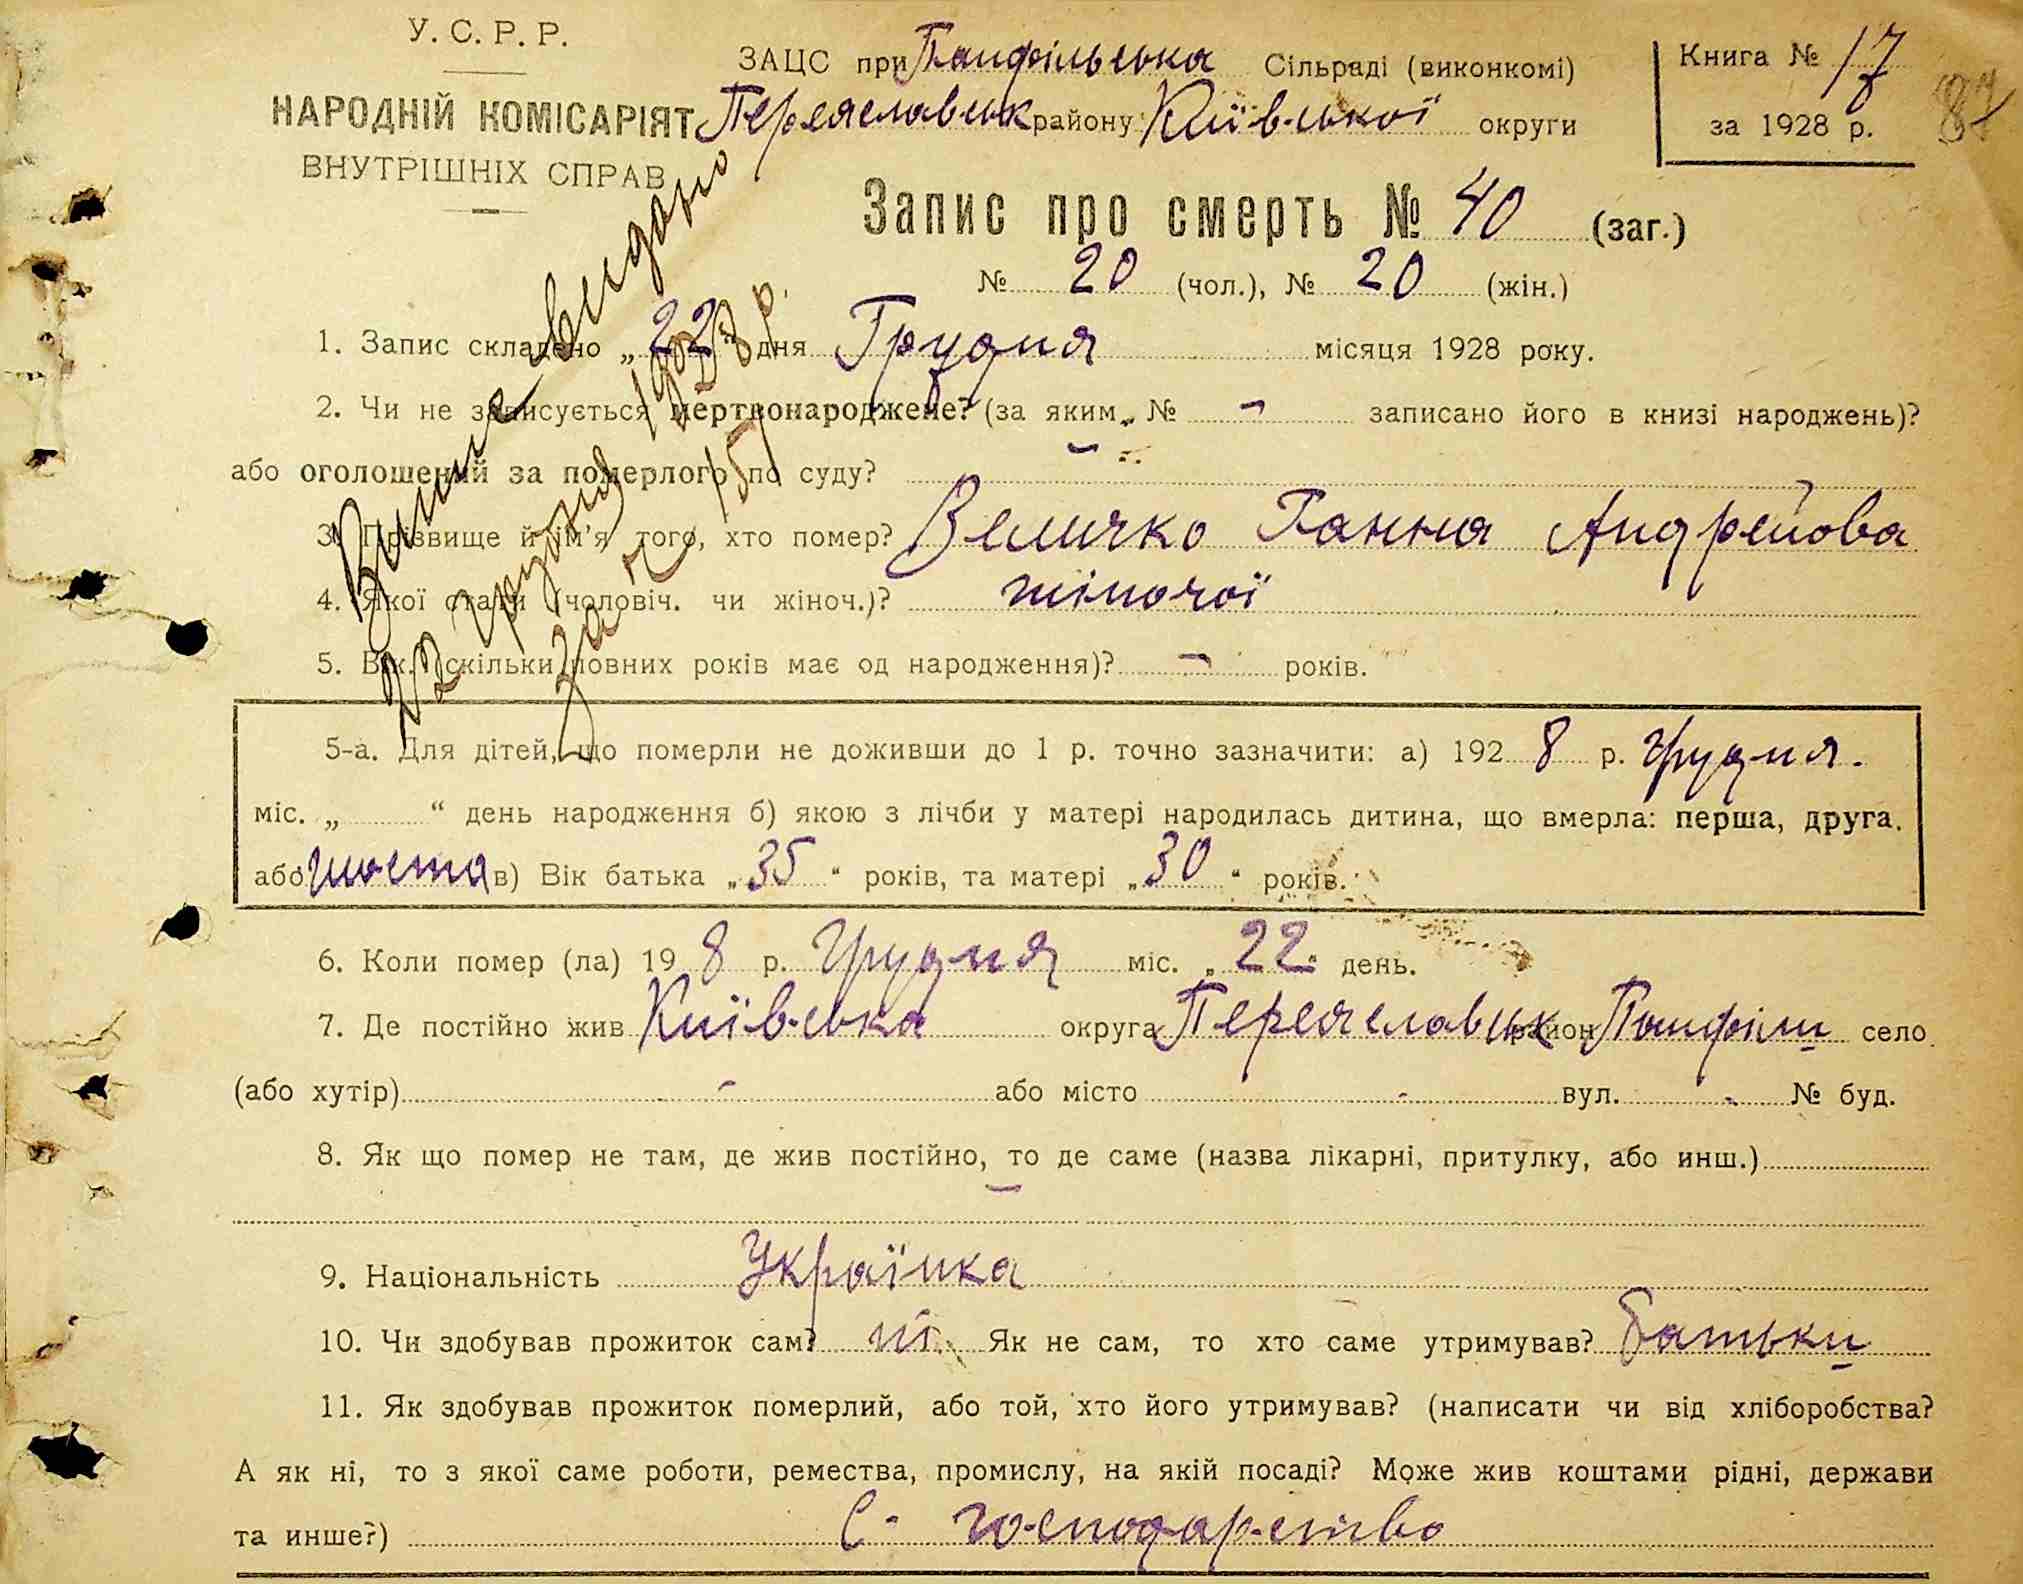 У. С. Р. Р.
НАРОДНІЙ КОМІСАРІЯТ
ВНУТРІШНІХ СПРАВ
ЗАЦС при Панфільська Сільраді (виконкомі)
Переяславськ району Київської округи
Книга № 17
за 1928 р.
84
Запис про смерть № 40 (заг.)
№ 20 (чол.), № 20 (жін.)
Витяг видано
22 грудня 1928 р.
за ч 151
1. Запис складено „22“ дня Грудня місяця 1928 року.
2. Чи не записується мертвонароджене? (за яким № - записано його в книзі народжень)?
або оголошений за померлого по суду? -
3. Прізвище й ім'я того, хто помер? Величко Ганна Андрейова
4. Якої стати (чоловіч. чи жіноч.)? жіночої
5. Вік. (скільки повних років має од народження)? - років.
5-а. Для дітей, що померли не доживши до 1 р. точно зазначити: а) 192 8 р. грудня.
міс. „ “ день народження б) якою з лічби у матері народилась дитина, що вмерла: перша, друга,
або шоста в) Вік батька „35“ років, та матері „30“ років.
6. Коли помер (ла) 19 8 р. грудня міс. „22“ день.
7. Де постійно жив Київська округа Переяславськ район Панфіли село
(або хутір) - або місто - вул. - № буд.
8. Як що помер не там, де жив постійно, то де саме (назва лікарні, притулку, або инш.)
-
9. Національність Українка
10. Чи здобував прожиток сам? ні Як не сам, то хто саме утримував? батьки
11. Як здобував прожиток померлий, або той, хто його утримував? (написати чи від хліборобства?
А як ні, то з якої саме роботи, ремества, промислу, на якій посаді? Може жив коштами рідні, держави
та инше?) С- господарство